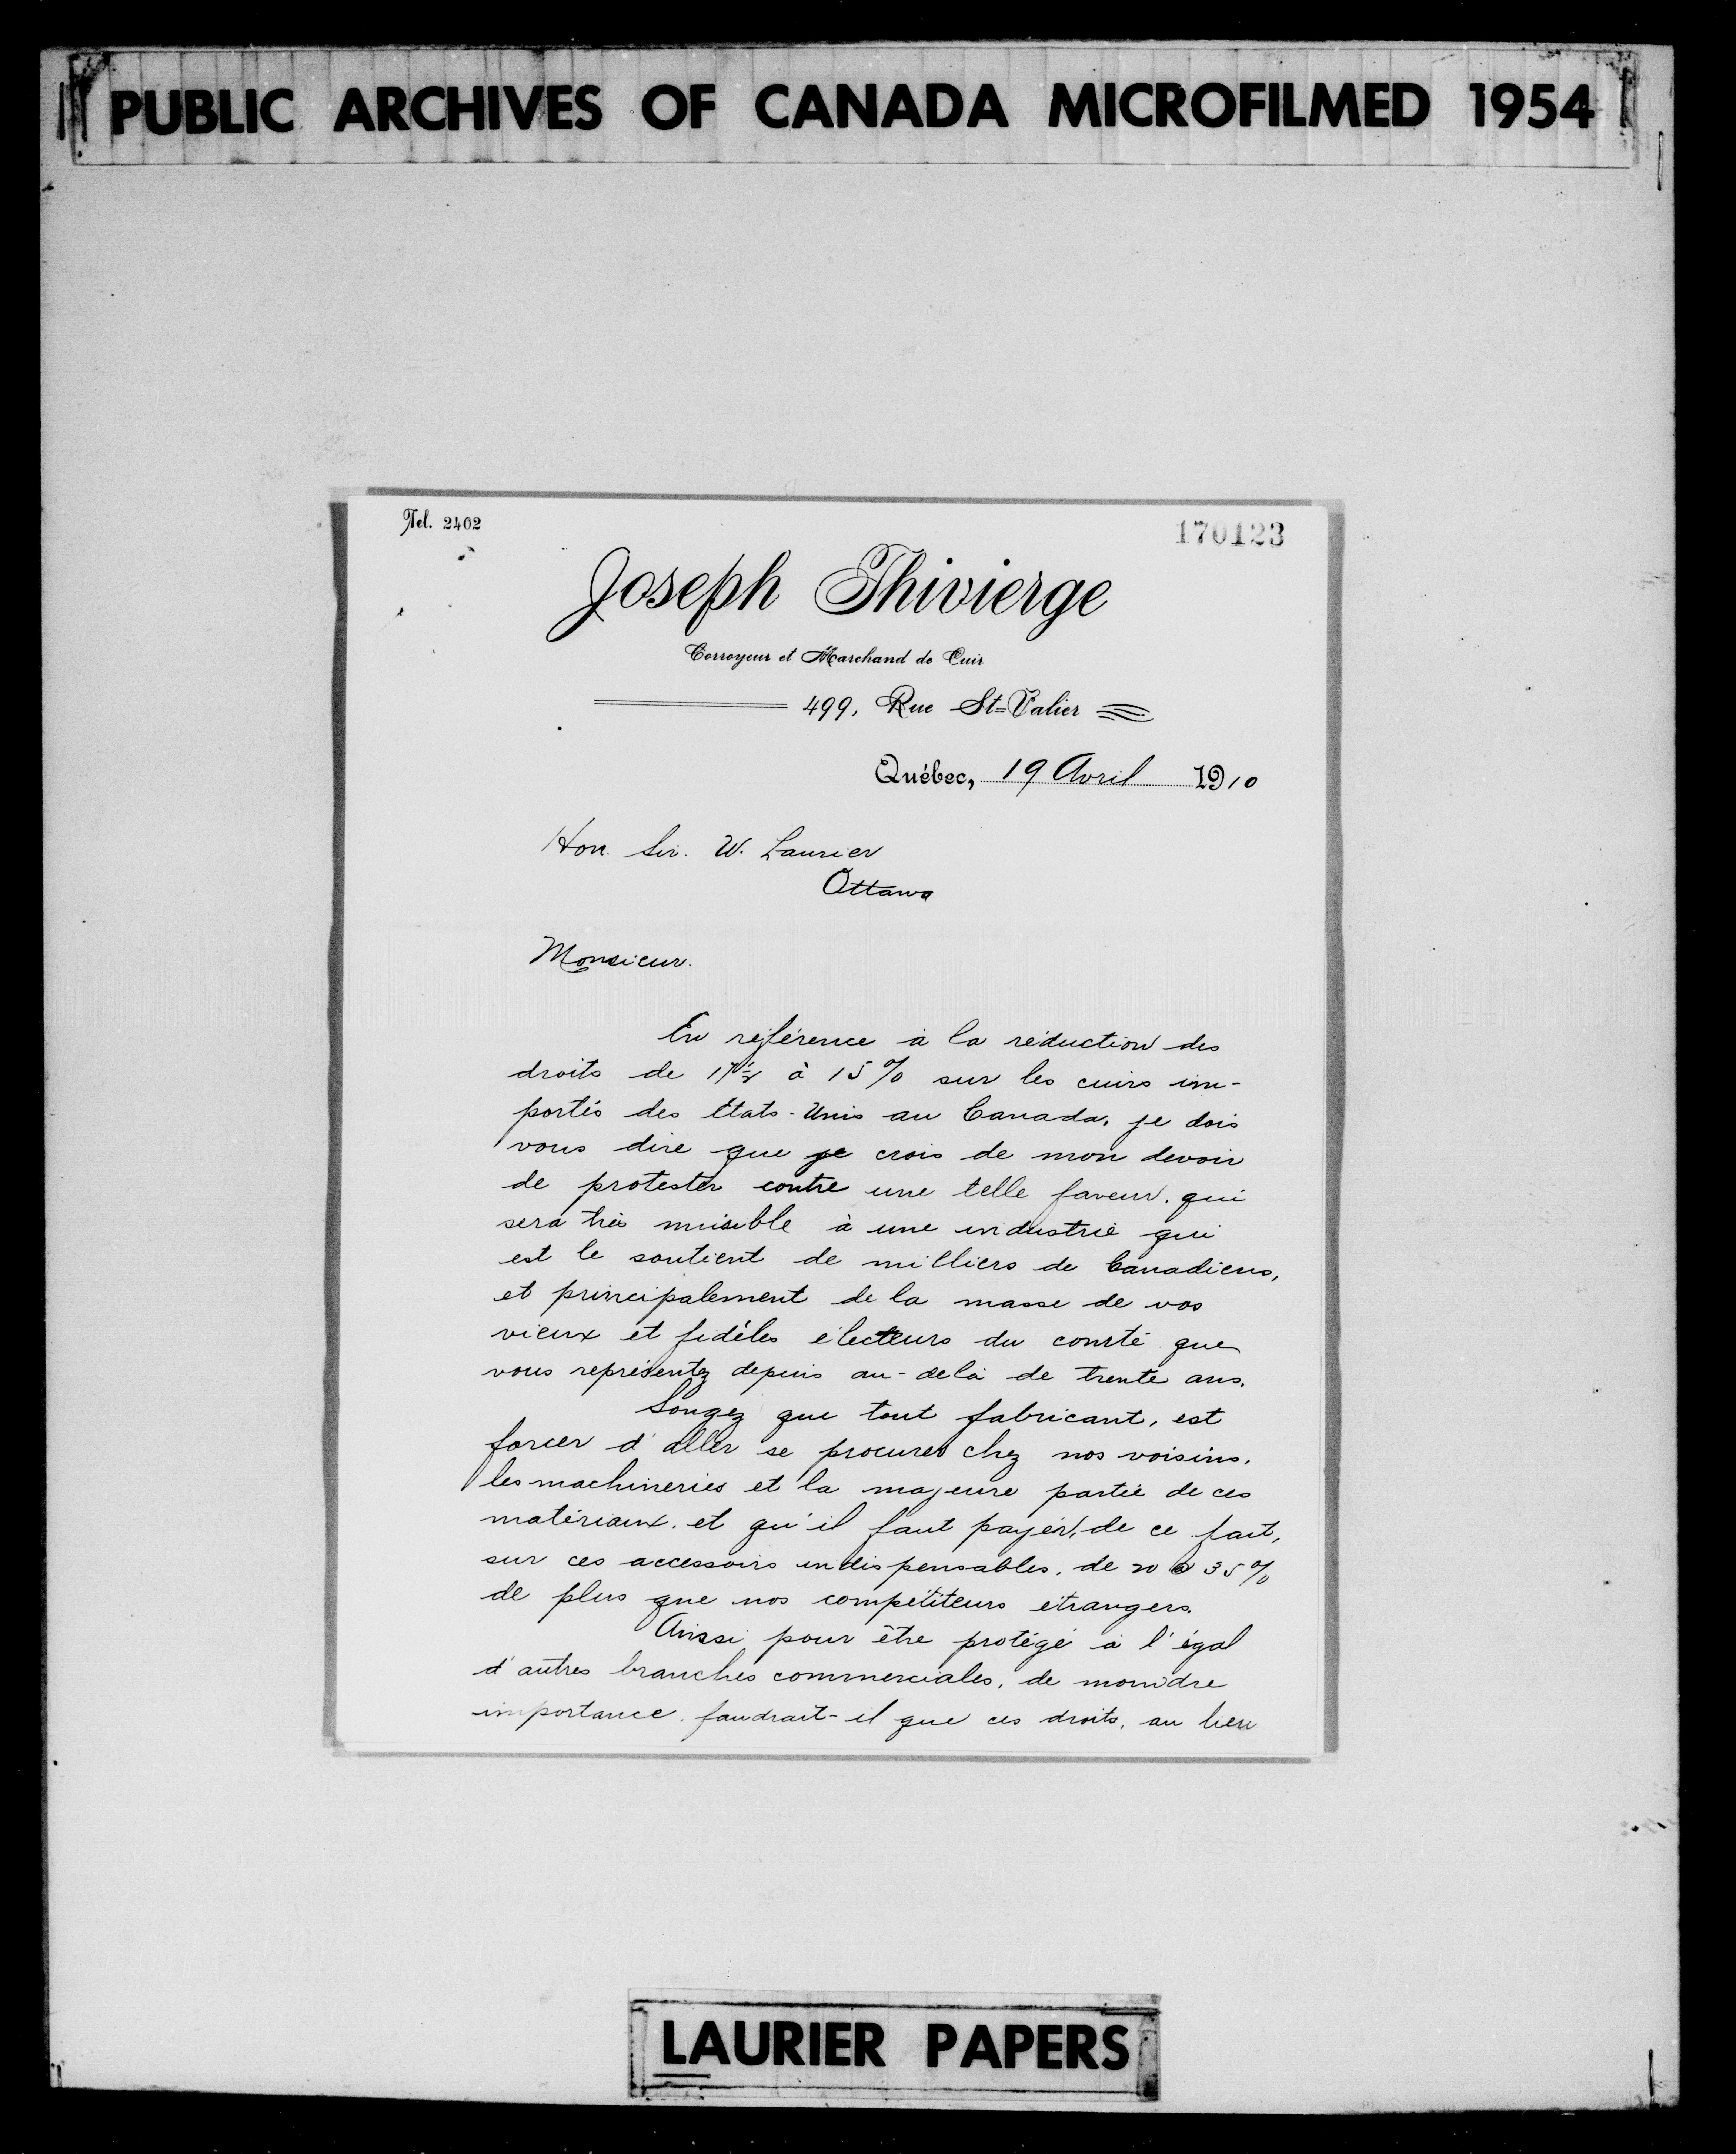 PUBLIC ARCHIVES OF CANADA MICROFILMED 1954
Tel. 2402
170123
Joseph Thivierge
Corroyeur et Marchand de Cuir
499, Rue St-Valier
Québec, 19 Avril 1910
Hon. Sir. W. Laurier
Ottawa
Monsieur.
En référence à la réduction des
droits de 17½ à 15% sur les cuirs im-
portés des États-Unis au Canada, je dois
vous dire que je crois de mon devoir
de protester contre une telle faveur, qui
sera très nuisible à une industrie qui
est le soutient de milliers de Canadiens,
et principalement de la masse de vos
vieux et fidèles électeurs du comté que
vous représentez depuis au-delà de trente ans.
Songez que tout fabricant, est
forcer d'aller se procurer chez nos voisins,
les machineries et la majeure partie de ces
matériaux, et qu'il faut payer, de ce fait,
sur ces accessoirs indispensables, de 20 @ 35%
de plus que nos compétiteurs étrangers.
Aussi pour être protégé à l'égal
d'autres branches commerciales, de moindre
importance, faudrait-il que ces droits, au lieu
LAURIER PAPERS